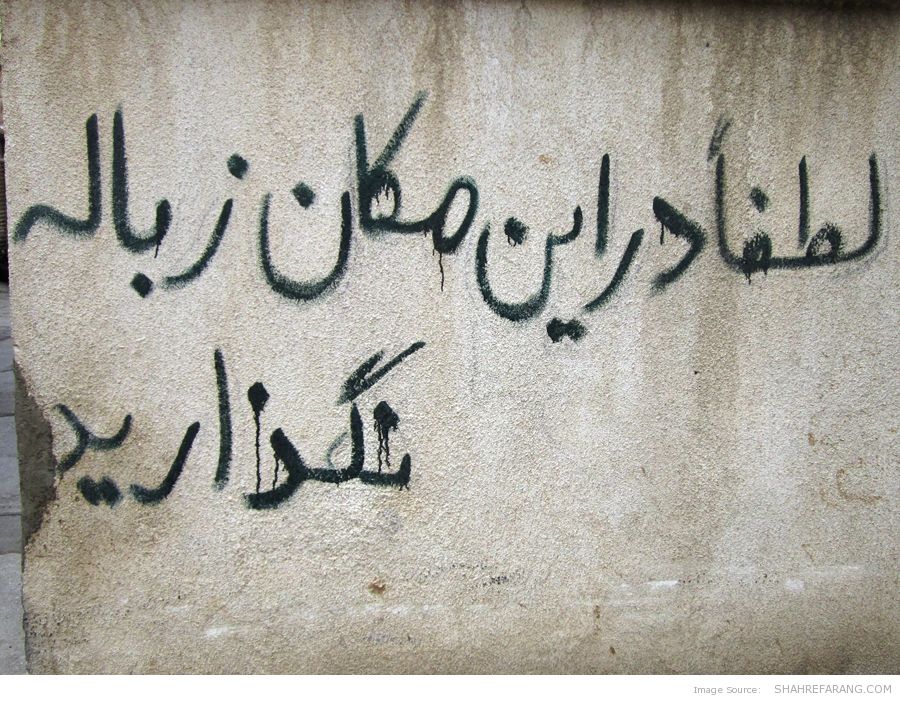 لطفاً در این مکان زباله
نگذارید
Image Source: SHAHREFARANG.COM